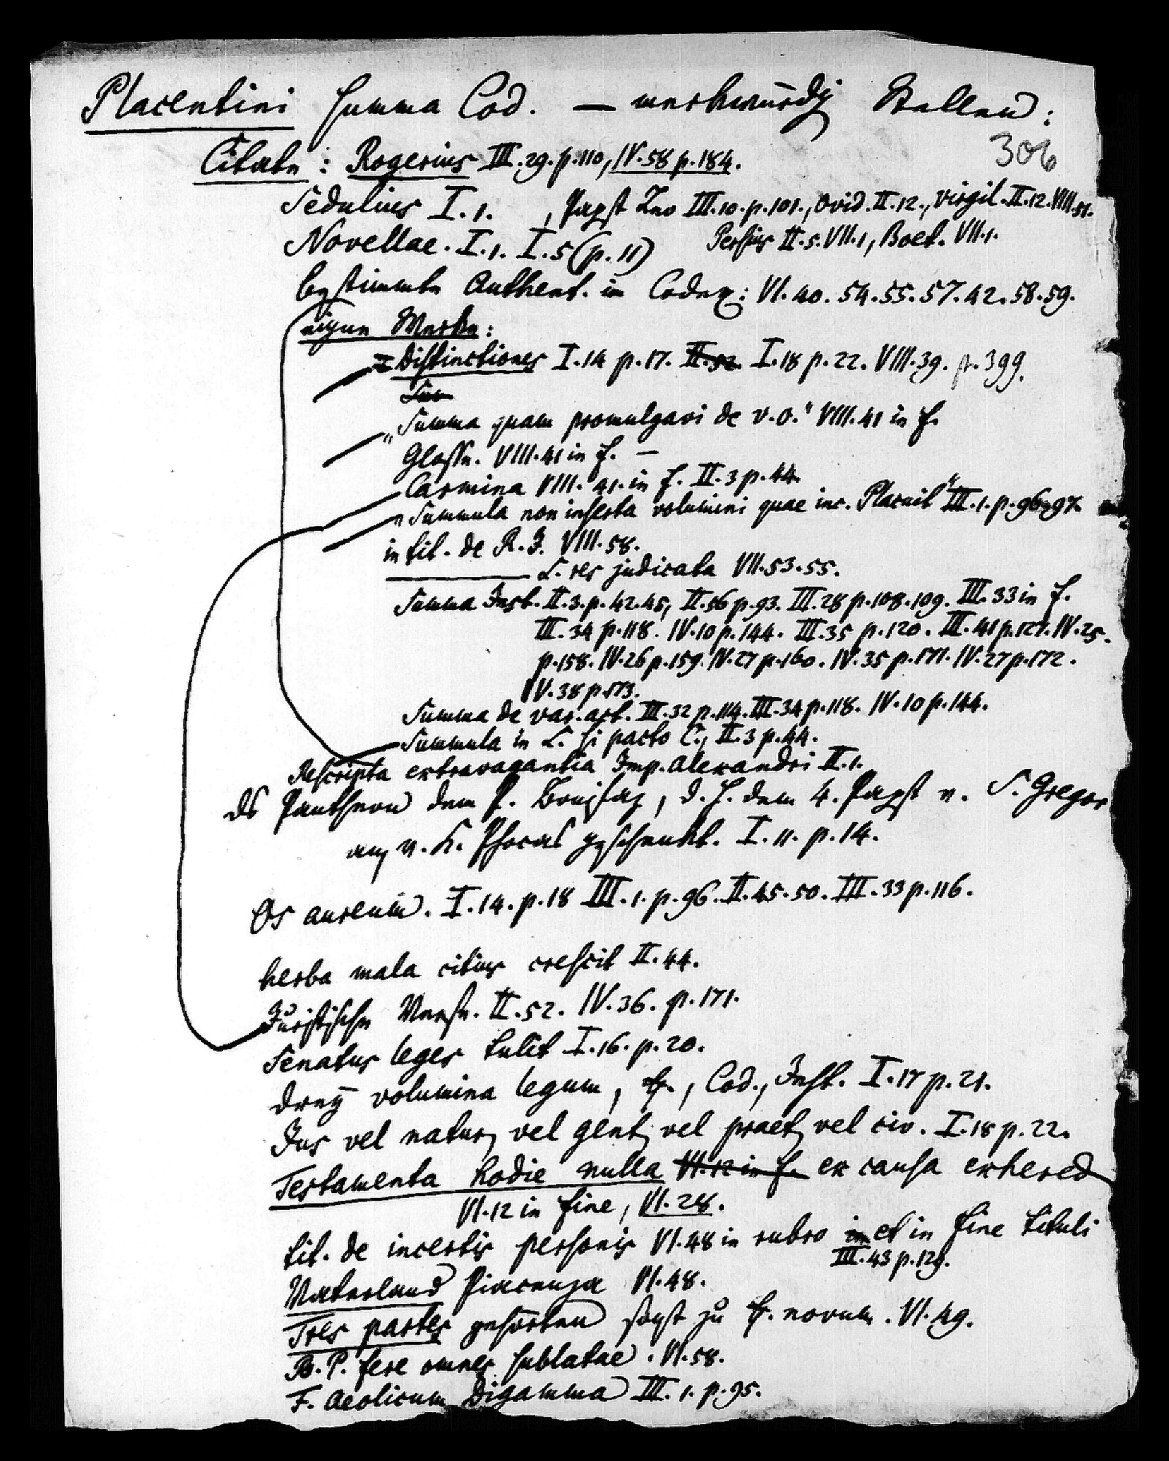 Placentini Summa Cod. — merkwürdig Stellen:
306
Citate: Rogerius III.29.p.110, IV.58 p.184.
Sedulius I.1. , Papst Leo III.10.p.101., Ovid.II.12., Virgil.II.12.VIII.51.
Novellae. I.1. I.5 (p.11) Persius II.5.VII.1, Boet. VII.1.
bestimmte Authent. im Codex: VI.40.54.55.57.42.58.59.
eigne Werke:
Distinctiones I.14 p.17. II.52 I.18 p.22. VIII.39. p.399.
Sum
„Summa quam promulgavi de v.o." VIII.41 in f.
Glosse. VIII.41 in f. —
Carmina VIII.41.in f. II.3 p.44.
„Summula non inserta volumini quae inc. Placuit" III.1.p.96.97.
in tit. de R.J. VIII.58.
——— L. res judicata VII.53.55.
Summa Inst. II.3.p.42.45, II.56 p.93. III.28 p.108.109. III.33 in f.
III.34 p.118. IV.10 p.144. III.35 p.120. III.41 p.127. IV.25.
p.158. IV.26 p.159. IV.27 p.160. IV.35 p.171. IV.27 p.172.
IV.38 p.173.
Summa de var. act. III.32 p.114. III.34 p.118. IV.10 p.144.
Summula in L. si pacto C., II.3 p.44.
Rescripta extravagantia Imp. Alexandri II.1.
ds Pantheon dem P. Bonifaz, d.h. dem 4. Papst n. S. Gregor
v. K. Phocas geschenkt. I.11. p.14.
Os aureum. I.14.p.18 III.1.p.96.II.45.50.III.33 p.116.
herba mala citius crescit II.44.
Juristische Verse. II.52. IV.36. p.171.
Senatus leges tulit I.16. p.20.
drey volumina legum, ff., Cod., Inst. I.17 p.21.
Jus vel natur, vel gent, vel praet, vel civ. I.18 p.22.
Testamenta hodie nulla VI.12 in f. ex causa exhered
VI.12 in fine, VI.28.
tit. de incertis personis VI.48 in rubro in et in fine tituli
III.43 p.129.
Vaterland Piacenza VI.48.
Tres partes gehörten sonst zu ff. novum. VI.49.
B.P. fere omnes sublatae. VI.58.
F. Aeolicum Digamma III.1.p.95.